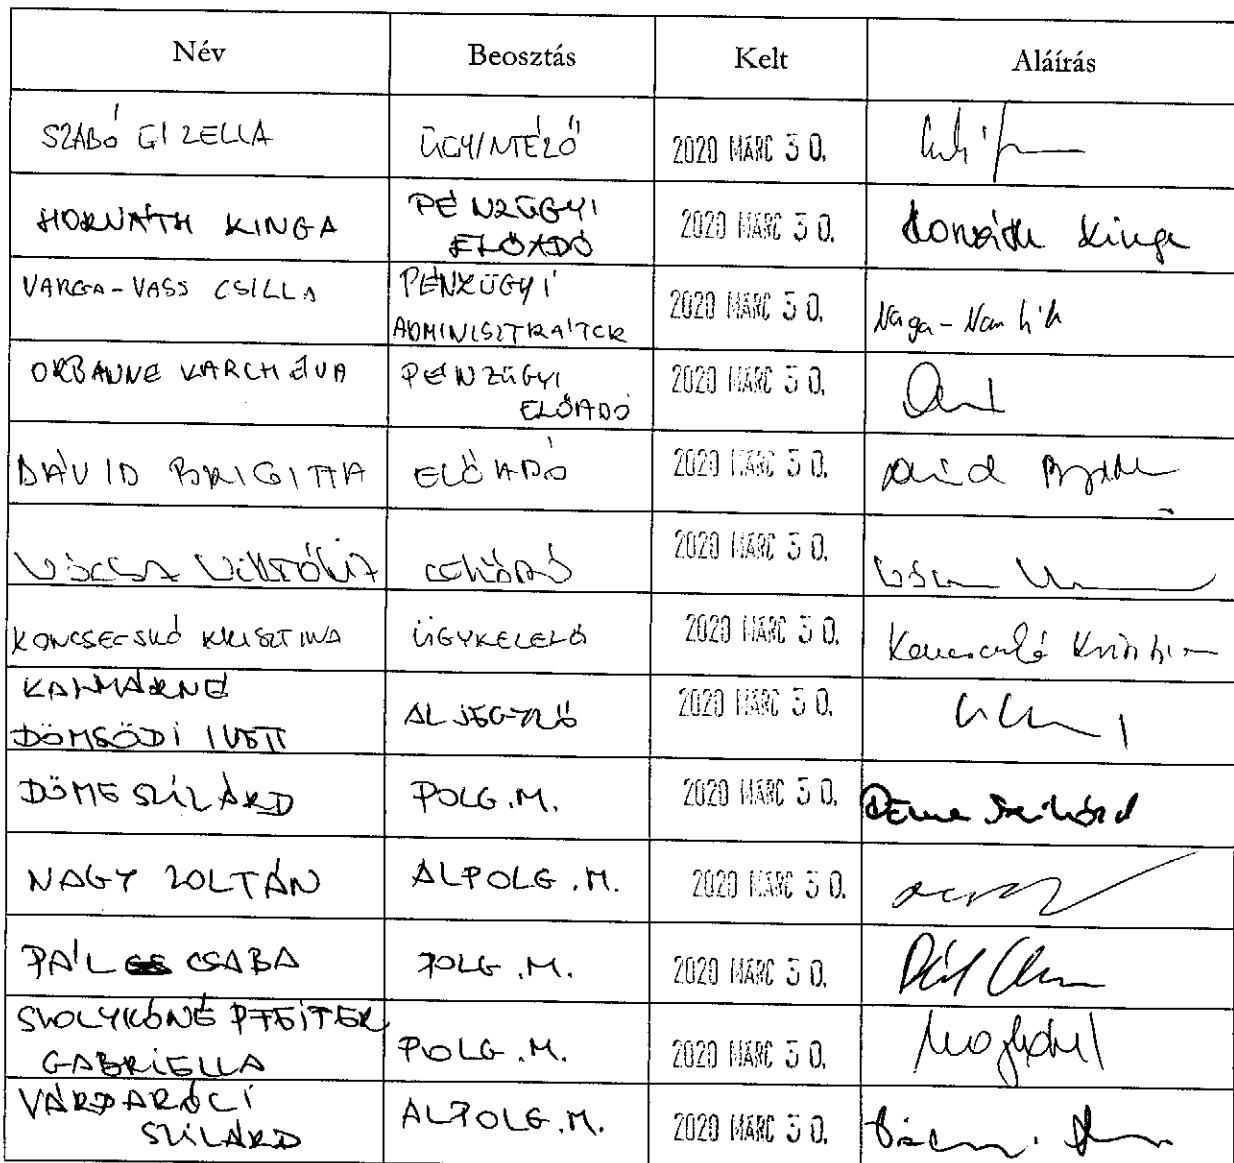 Név Beosztás Kelt Aláírás
SZABÓ GIZELLA ÜGYINTÉZŐ 2020 MÁRC 30.
HORVÁTH KINGA PÉNZÜGYI ELŐADÓ 2020 MÁRC 30. Horváth Kinga
VARGA-VASS CSILLA PÉNZÜGYI ADMINISZTRÁTOR 2020 MÁRC 30.
ORBÁNNÉ KARCH ÉVA PÉNZÜGYI ELŐADÓ 2020 MÁRC 30.
DÁVID BRIGITTA ELŐADÓ 2020 MÁRC 30. Dávid
VIKTÓRIA 2020 MÁRC 30.
KONCSECSKÓ KRISZTINA ÜGYKEZELŐ 2020 MÁRC 30. Koncsecskó Krisztina
KALMÁRNÉ
DÖMSÖDI IVETT ALJEGYZŐ 2020 MÁRC 30.
DÖME SZILÁRD POLG.M. 2020 MÁRC 30. Döme Szilárd
NAGY ZOLTÁN ALPOLG.M. 2020 MÁRC 30.
PÁL CSABA POLG.M. 2020 MÁRC 30. Pál
GABRIELLA POLG.M. 2020 MÁRC 30.
VÁRDARÓCI
SZILÁRD ALPOLG.M. 2020 MÁRC 30.